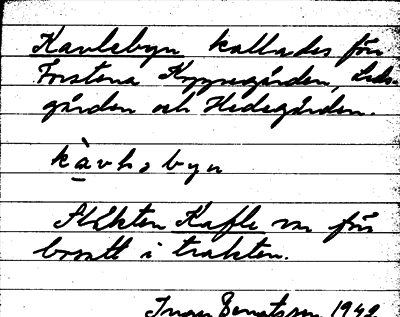 Kavlebyn kallades för
Forstena Kyrnegården, Lids-
gården och Hedegården.
kàvlsbyn
Släkten Kafle var för
bosatt i trakten.
Ingar Ernstsson 1942